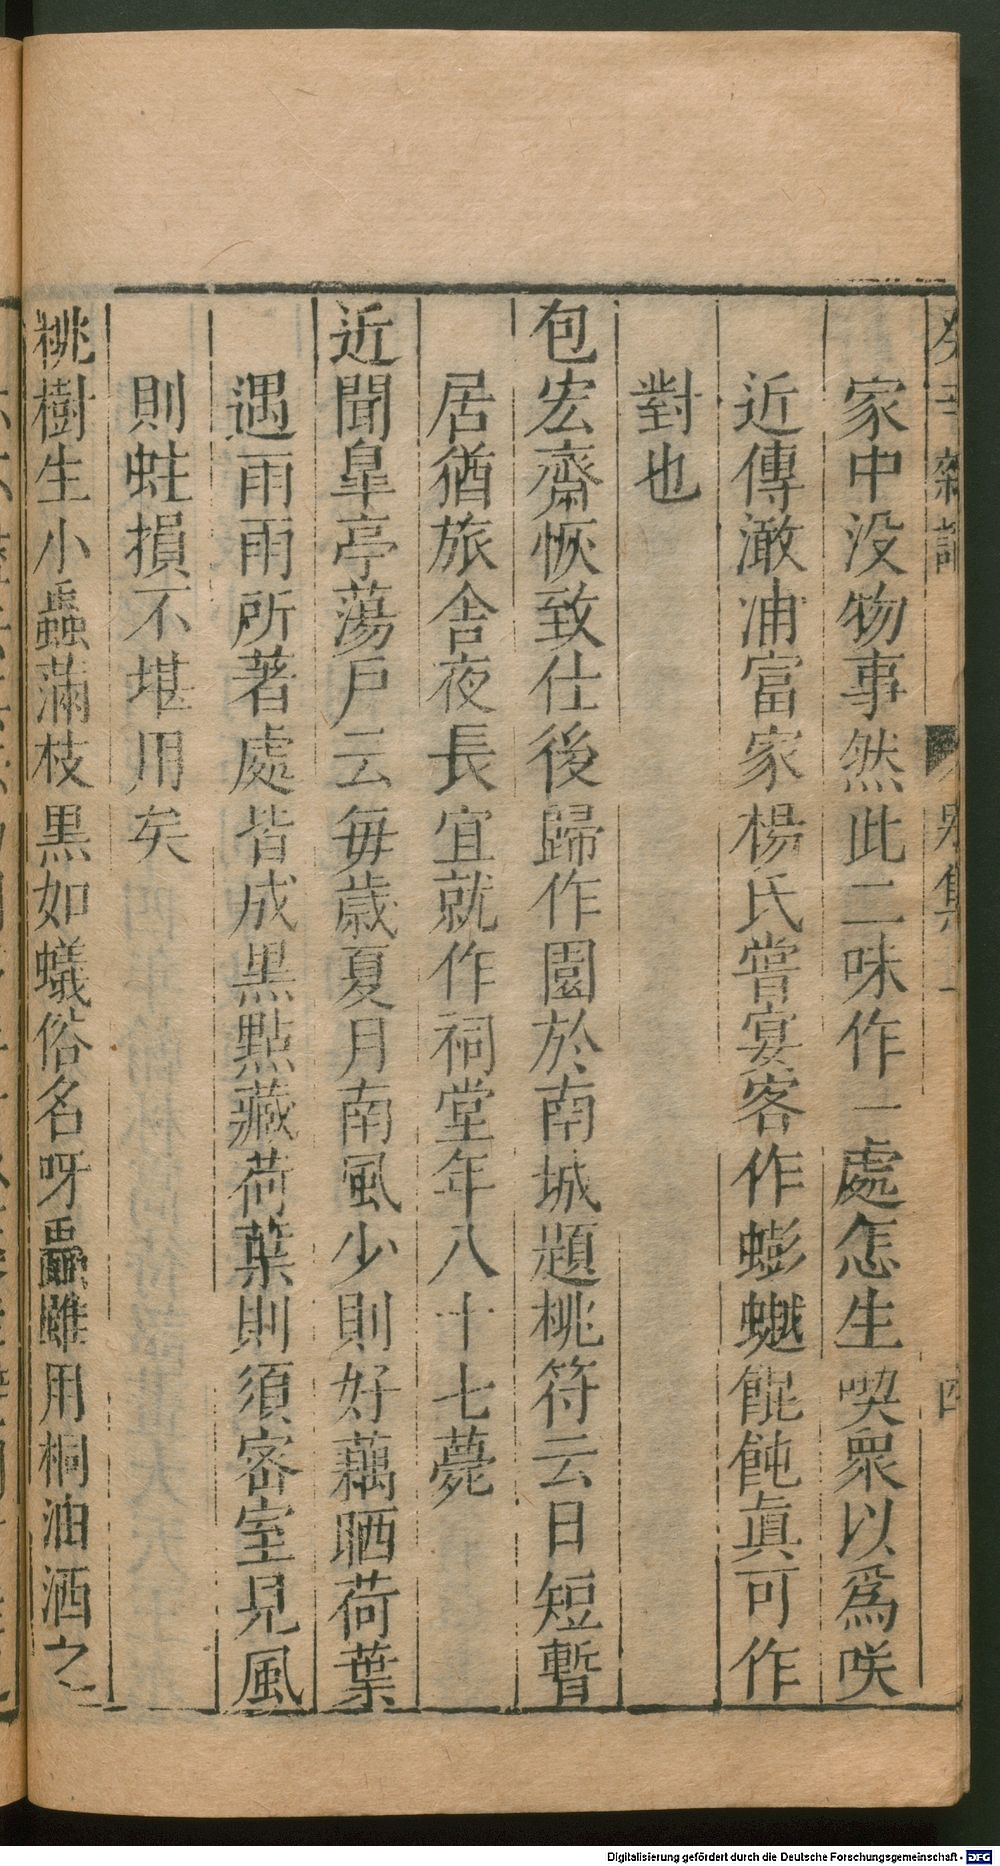 癸辛雜識
別集上
四
家中没物事然此二味作一處怎生喫衆以爲咲
近傳澉浦富家楊氏嘗宴客作蟛蚏餛飩眞可作
對也
包宏齋恢致仕後歸作園於南城題桃符云日短暫
居猶旅舍夜長宜就作祠堂年八十七薨
近聞皐亭蕩戶云毎歲夏月南風少則好藕晒荷葉
遇雨雨所著處皆成黒點藏荷葉則須密室見風
則蛀損不堪用矣
桃樹生小蟲滿枝黒如蟻俗名呀蟲雖用桐油洒之
Digitalisierung gefördert durch die Deutsche Forschungsgemeinschaft - DFG